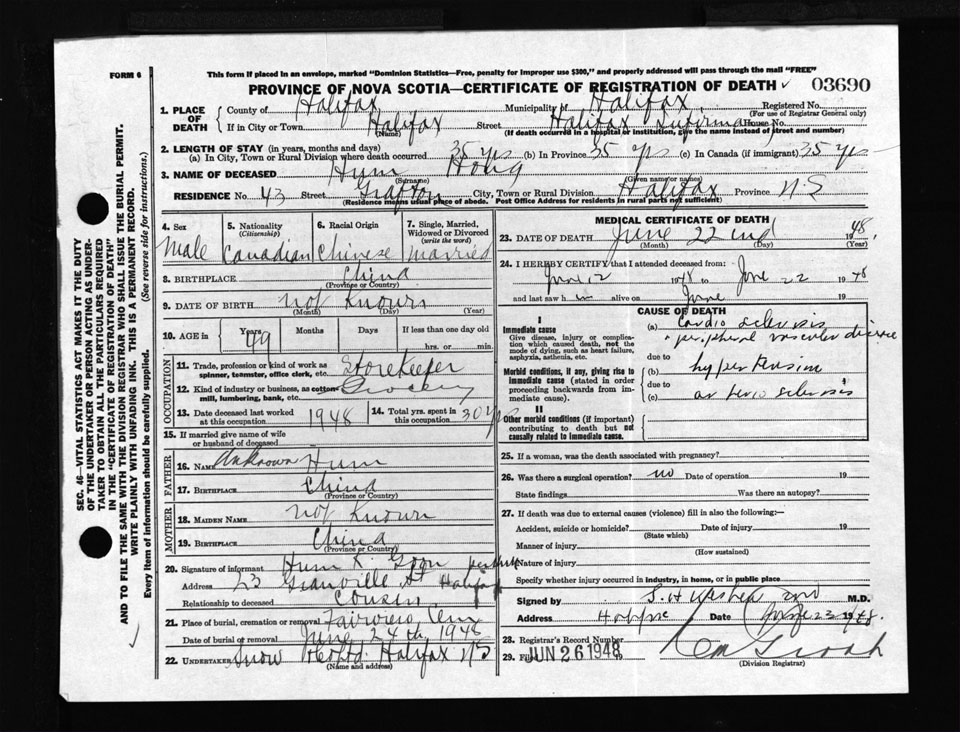 FORM 6
This form if placed in an envelope, marked "Dominion Statistics—Free, penalty for improper use $300," and properly addressed will pass through the mail "FREE"
PROVINCE OF NOVA SCOTIA—CERTIFICATE OF REGISTRATION OF DEATH 03690
1. PLACE OF DEATH County of Halifax Municipality of Halifax Registered No. (For use of Registrar General only)
If in City or Town Halifax (Name) Street Halifax Infirmary House No.
(If death occurred in a hospital or institution, give the name instead of street and number)
2. LENGTH OF STAY (in years, months and days)
(a) In City, Town or Rural Division where death occurred 35 yrs (b) In Province 35 yrs (c) In Canada (if immigrant) 35 yrs
3. NAME OF DECEASED Hum Hong
(Surname) (Given name or names)
RESIDENCE No. 43 Street Grafton City, Town or Rural Division Halifax Province N.S
(Residence means usual place of abode. Post Office Address for residents in rural parts not sufficient)
SEC. 46—VITAL STATISTICS ACT MAKES IT THE DUTY
OF THE UNDERTAKER OR PERSON ACTING AS UNDER-
TAKER TO OBTAIN ALL THE PARTICULARS REQUIRED
IN THE "CERTIFICATE OF REGISTRATION OF DEATH"
AND TO FILE THE SAME WITH THE DIVISION REGISTRAR WHO SHALL ISSUE THE BURIAL PERMIT.
WRITE PLAINLY WITH UNFADING INK. THIS IS A PERMANENT RECORD.
Every item of information should be carefully supplied. (See reverse side for instructions.)
4. Sex 5. Nationality (Citizenship) 6. Racial Origin 7. Single, Married, Widowed or Divorced (write the word)
Male Canadian Chinese Married
8. BIRTHPLACE China
(Province or Country)
9. DATE OF BIRTH not Known
(Month) (Day) (Year)
10. AGE in Years Months Days If less than one day old
hrs. or min.
OCCUPATION
11. Trade, profession or kind of work as spinner, teamster, office clerk, etc. Storekeeper
12. Kind of industry or business, as cotton mill, lumbering, bank, etc. Grocery
13. Date deceased last worked at this occupation 1948 14. Total yrs. spent in this occupation 30 yrs
15. If married give name of wife or husband of deceased
FATHER
16. NAME Unknown Hum
17. BIRTHPLACE China
(Province or Country)
MOTHER
18. MAIDEN NAME not Known
19. BIRTHPLACE China
(Province or Country)
20. Signature of informant Hum K. Goon
Address 23 Granville St Halifax
Relationship to deceased Cousin
21. Place of burial, cremation or removal Fairview Cem
Date of burial or removal June 24th, 1948
22. UNDERTAKER Snow Halifax NS
(Name and address)
MEDICAL CERTIFICATE OF DEATH
23. DATE OF DEATH June 22nd 1948
(Month) (Day) (Year)
24. I HEREBY CERTIFY that I attended deceased from:
June 12 1948 to June 22 1948
and last saw him alive on June
CAUSE OF DEATH
I
Immediate cause
Give disease, injury or complication which caused death, not the mode of dying, such as heart failure, asphyxia, asthenia, etc.
(a) Cardio sclerosis
peripheral vascular disease
due to
Morbid conditions, if any, giving rise to immediate cause (stated in order proceeding backwards from immediate cause).
(b) hypertension
due to
(c) arterio sclerosis
II
Other morbid conditions (if important) contributing to death but not causally related to immediate cause.
25. If a woman, was the death associated with pregnancy?
26. Was there a surgical operation? no Date of operation 19
State findings Was there an autopsy?
27. If death was due to external causes (violence) fill in also the following:—
Accident, suicide or homicide? Date of injury 19
(State which)
Manner of injury
(How sustained)
Nature of injury
Specify whether injury occurred in industry, in home, or in public place
Signed by M.D.
Address Halifax 23 1948.
28. Registrar's Record Number
29. Filed JUN 26 1948 19
(Division Registrar)